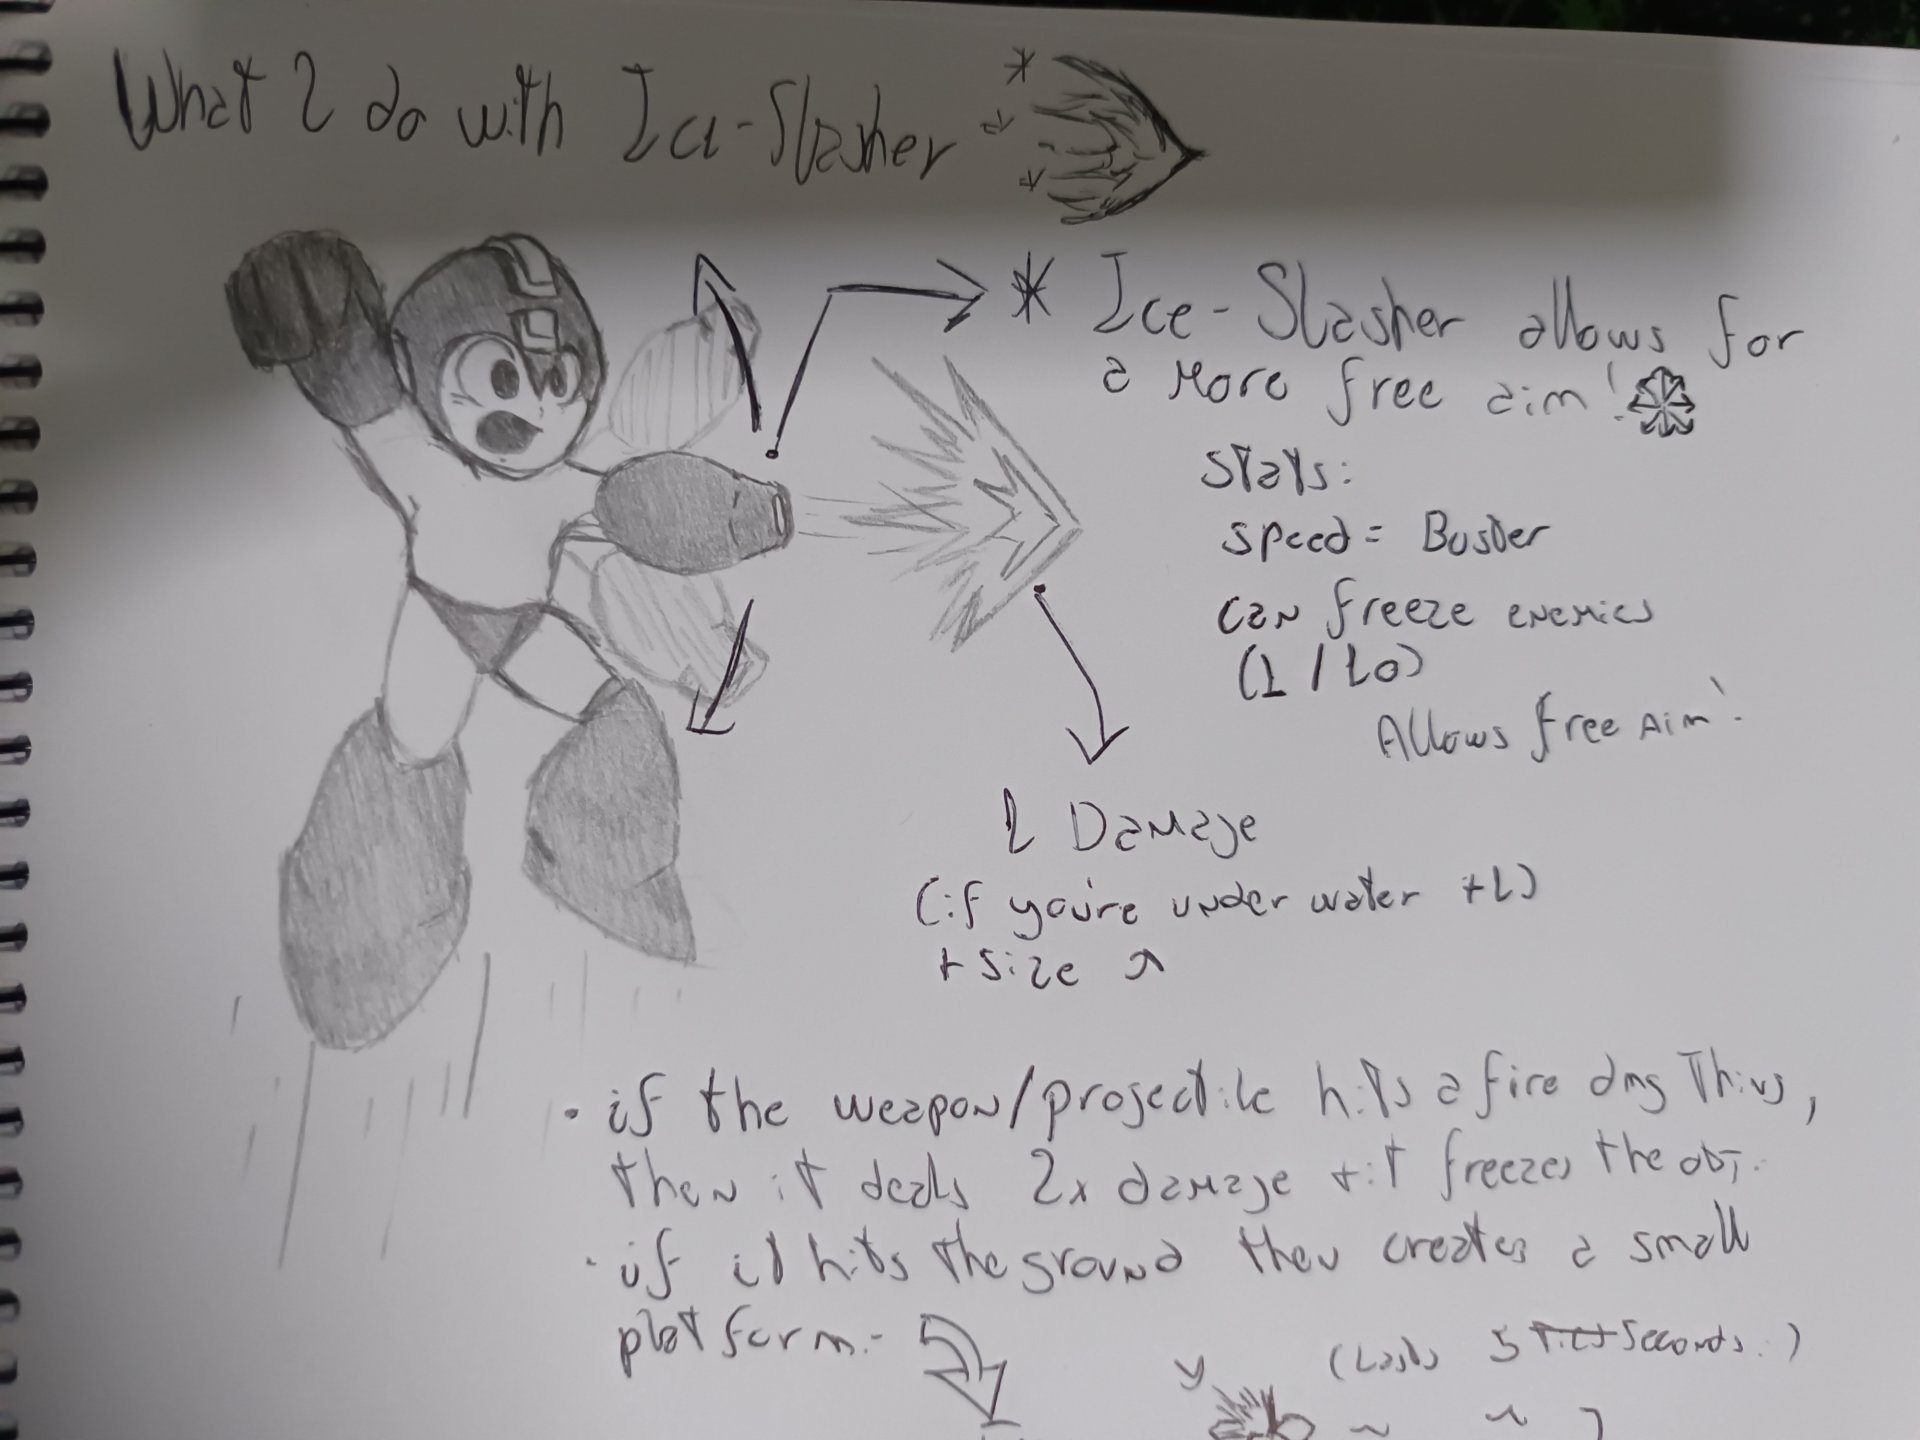 What I do with Ice-Slasher
* Ice-Slasher allows for
a more free aim!
Stats:
speed = Buster
can freeze enemies
(1/10)
Allows free aim!
1 Damage
(if you're under water +1)
+ size ↗
• if the weapon/projectile hits a fire dmg thing,
then it deals 2x damage + it freezes the obj.
• if it hits the ground then creates a small
platform.-
(Lasts 5 seconds.)